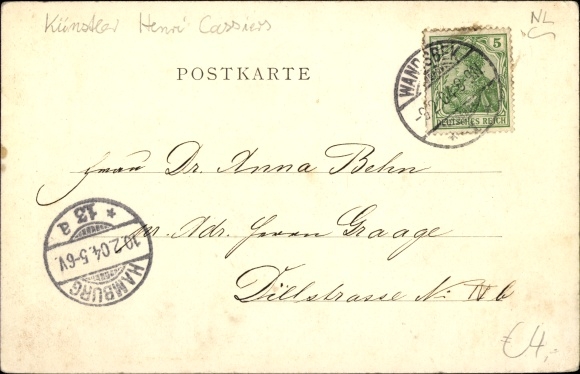 Künstler Henri Cassiers
NL
5
DEUTSCHES REICH
WANDSBEK
POSTKARTE
Frau Dr. Anna Behn
pr. Adr. Herrn Graage
Dillstrasse No
HAMBURG
* 13 a
10.2.04.5-6V.
€4,-